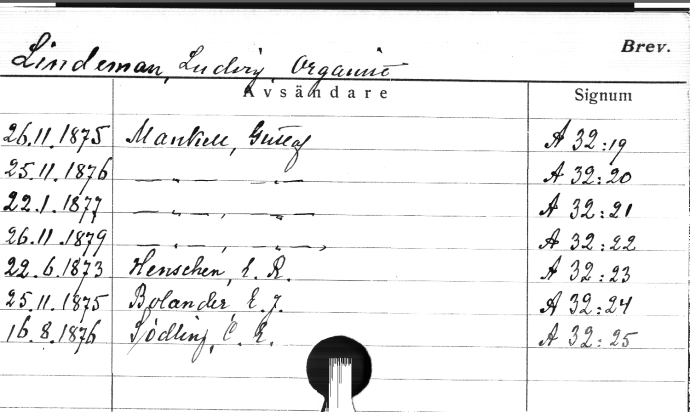 Lindeman, Ludvig, Organist
Brev.
Avsändare Signum
26.11.1875 Mankell, Gustaf A 32:19
25.11.1876 — „ — — „ — A 32:20
22.1.1877 — „ —, — „ — A 32:21
26.11.1879 — „ —, — „ —, A 32:22
22.6.1873 Henschen, L. R. A 32:23
25.11.1875 Bolander E. J. A 32:24
16.8.1876 Södling, C. E. A 32:25